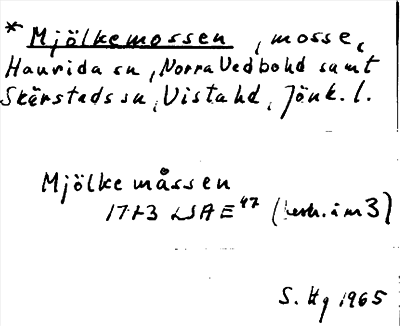 * Mjölkemossen, mosse,
Haurida sn, Norra Vedbohd samt
Skärstads sn, Vista hd, Jönk. l.
Mjölke måssen
1773 LSA E 47 ( i m 3)
S. Hg 1965